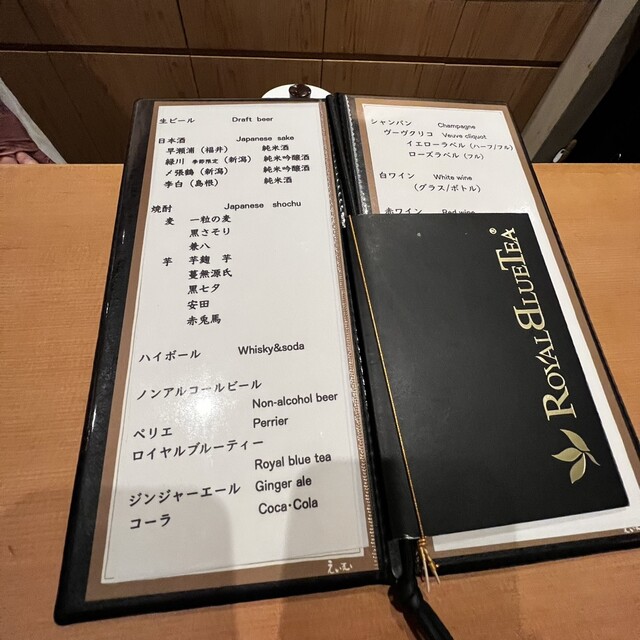 生ビール Draft beer
日本酒 Japanese sake
早瀬浦（福井） 純米酒
緑川 季節限定（新潟） 純米吟醸酒
〆張鶴（新潟） 純米吟醸酒
李白（島根） 純米酒
焼酎 Japanese shochu
麦 一粒の麦
黒さそり
兼八
芋 芋麹 芋
蔓無源氏
黒七夕
安田
赤兎馬
ハイボール Whisky&soda
ノンアルコールビール
Non-alcohol beer
ペリエ Perrier
ロイヤルブルーティー
Royal blue tea
ジンジャーエール Ginger ale
コーラ Coca・Cola
シャンパン Champagne
ヴーヴクリコ Veuve cliquot
イエローラベル（ハーフ/フル）
ローズラベル（フル）
白ワイン White wine
（グラス/ボトル）
赤ワイン Red wine
ROYAL BLUE TEA®